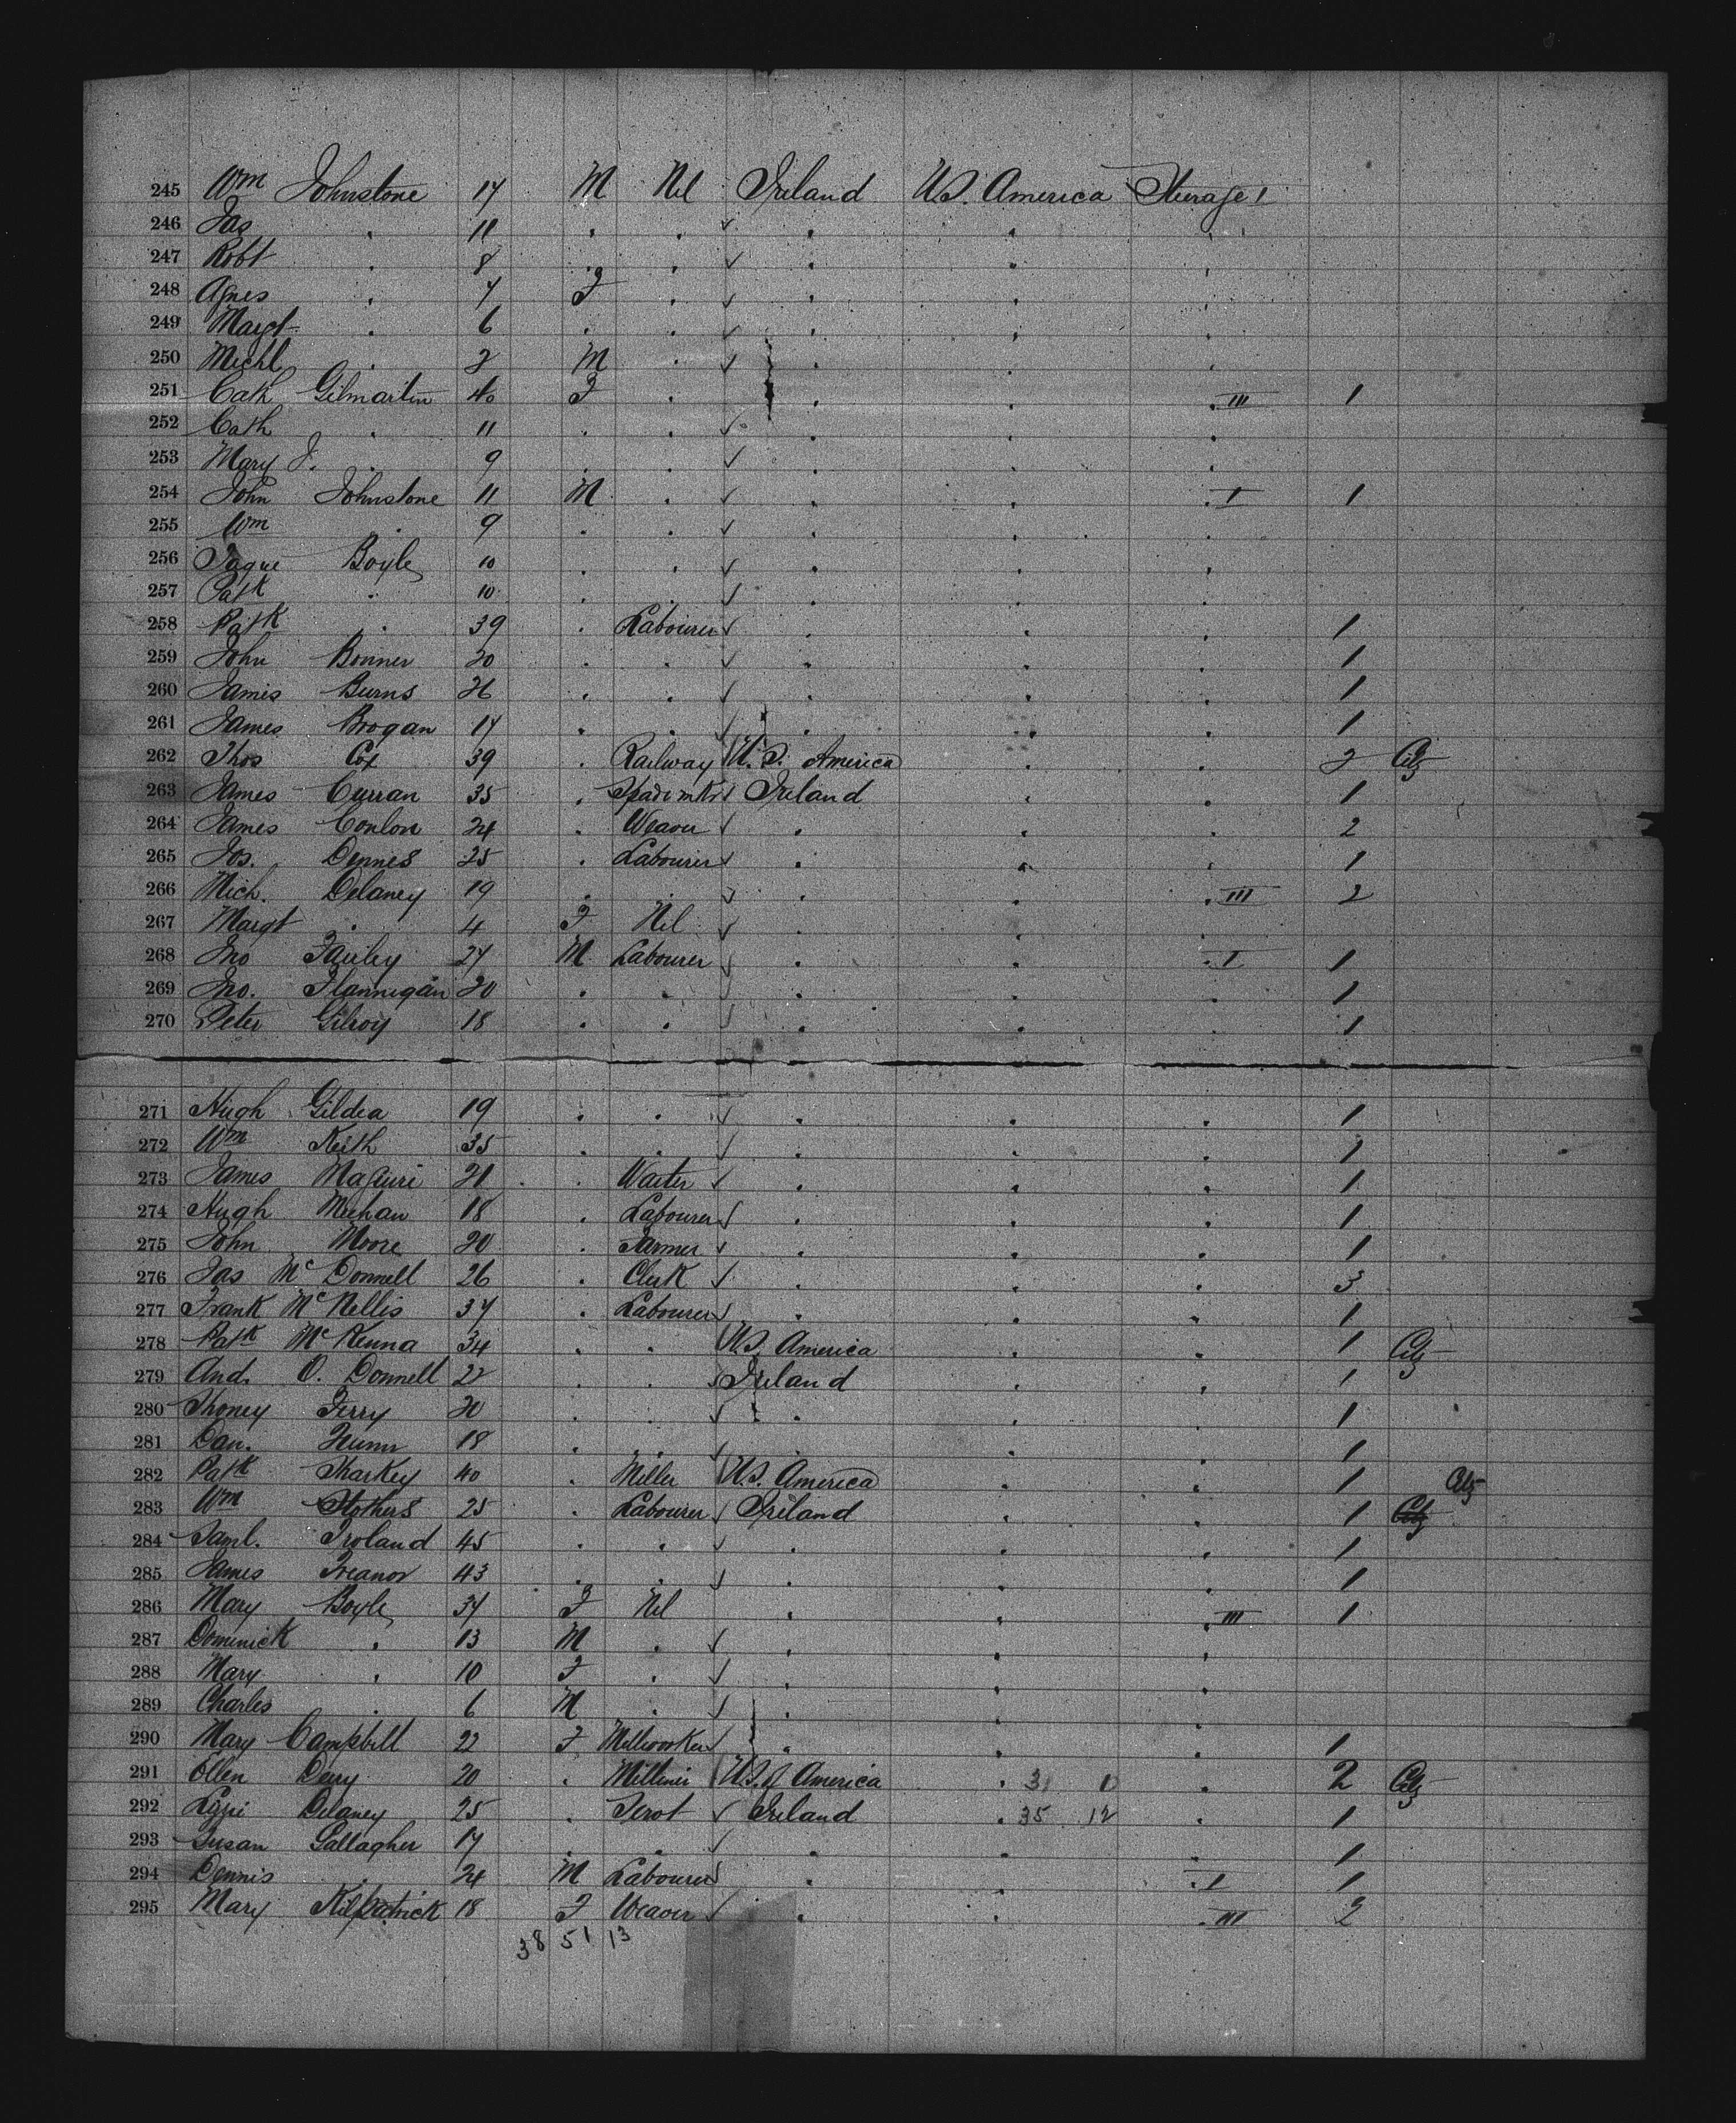 245 Wm Johnstone 17 M Nil Ireland U.S. America Steerage 1
246 Jas . 11 . . ✓ . . .
247 Robt . 8 . . ✓ . . .
248 Agnes . 7 F . ✓ . . .
249 Margt . 6 . . ✓ . . .
250 Michl . 2 M . ✓ . .
251 Cath Gilmartin 40 F . . . . III 1
252 Cath . 11 . . ✓ . . .
253 Mary J. . 9 . . ✓ . . .
254 John Johnstone 11 M . ✓ . . . I 1
255 Wm . 9 . . ✓ . . .
256 Boyle 10 . . ✓ . . .
257 Patk . 10 . . ✓ . . .
258 Patk . 39 . Labourer ✓ . . . 1
259 John Bonner 20 . . ✓ . . . 1
260 James Burns 26 . . ✓ . . . 1
261 James Brogan 17 . . ✓ . . . 1
262 Thos Cox 39 . Railway U.S. America . . 2 Citz
263 James Curran 35 . Spademkr ✓ Ireland . . 1
264 James Conlon 24 . Weaver ✓ . . . 2
265 Jos. Dennes 25 . Labourer ✓ . . . 1
266 Mich. Delaney 19 . . ✓ . . . III 2
267 Margt . 4 F Nil ✓ . . .
268 Jno 24 M Labourer ✓ . . . I 1
269 Jno. Flannigan 20 . . ✓ . . . 1
270 Peter Gilroy 18 . . ✓ . . . 1
271 Hugh Gildea 19 . . ✓ . . . 1
272 Wm Keith 35 . . ✓ . . . 1
273 James Maguire 21 . Waiter ✓ . . . 1
274 Hugh Meehan 18 . Labourer ✓ . . . 1
275 John Moore 20 . Farmer ✓ . . . 1
276 Jas McDonnell 26 . Clerk ✓ . . . 3
277 Frank McNellis 37 . Labourer ✓ . . . 1
278 Patk McKenna 34 . . U.S. America . . 1 Citz
279 And. O. Donnell 22 . . ✓ Ireland . . 1
280 Terry 20 . . ✓ . . . 1
281 Dan. 18 . . ✓ . . . 1
282 Patk Sharkey 40 . Miller U.S. America . . 1 Citz
283 Wm Stothers 25 . Labourer ✓ Ireland . . 1 Citz
284 Saml. Troland 45 . . ✓ . . . 1
285 James Treanor 43 . . ✓ . . . 1
286 Mary Boyle 37 F Nil . . . III 1
287 Dominick . 13 M . ✓ . . .
288 Mary . 10 F . ✓ . . .
289 Charles . 6 M . ✓ . . .
290 Mary Campbell 22 F Millworker ✓ . . . 1
291 Ellen Deery 20 . Milliner U.S. of America . 31 1 . 2 Citz
292 Lizzie Delaney 25 . Servt ✓ Ireland . 35 12 . 1
293 Susan Gallagher 17 . . ✓ . . . 1
294 Dennis . 24 M Labourer ✓ . . . I 1
295 Mary Kilpatrick 18 F Weaver ✓ . . . III 2
38 51 13